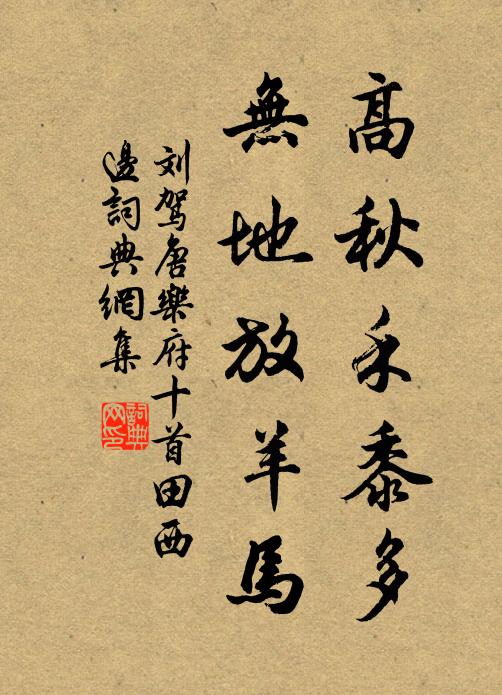 高秋禾黍多
無地放羊馬
刘驾唐樂府十首田西
邊詞典網集
詞典網印